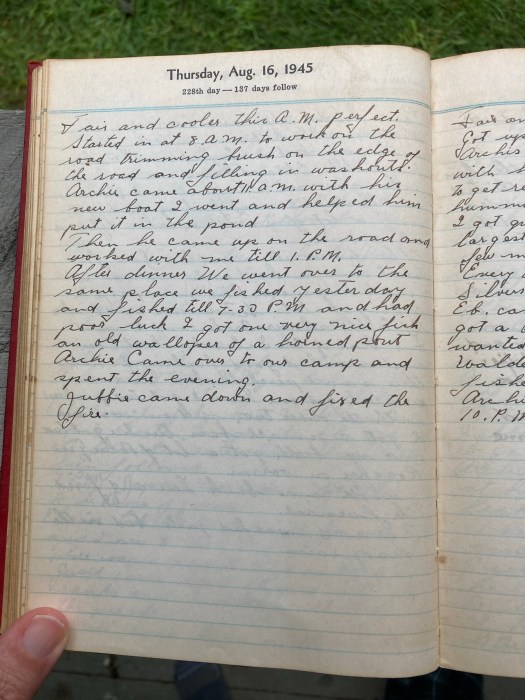 Thursday, Aug. 16, 1945
228th day — 137 days follow
Fair and cooler this A.M. perfect.
Started in at 8 A.M. to work on the
road trimming brush on the edge of
the road and filling in washouts.
Archie came about 11 a.m. with his
new boat I went and helped him
put it in the pond
Then he came up on the road and
worked with me till 1. P.M.
After dinner We went over to the
same place we fished yesterday
and fished till 7-30 P.M and had
poor luck I got one very nice fish
an old walloper of a horned pout
Archie Came over to our camp and
spent the evening.
came down and fixed the
fire.
Fair an
Got up
Archie
with
to get
I got
larges
few m
Every
Silver
Eb. ca
got a
wanted
Walde
fishe
Archi
10. P. M